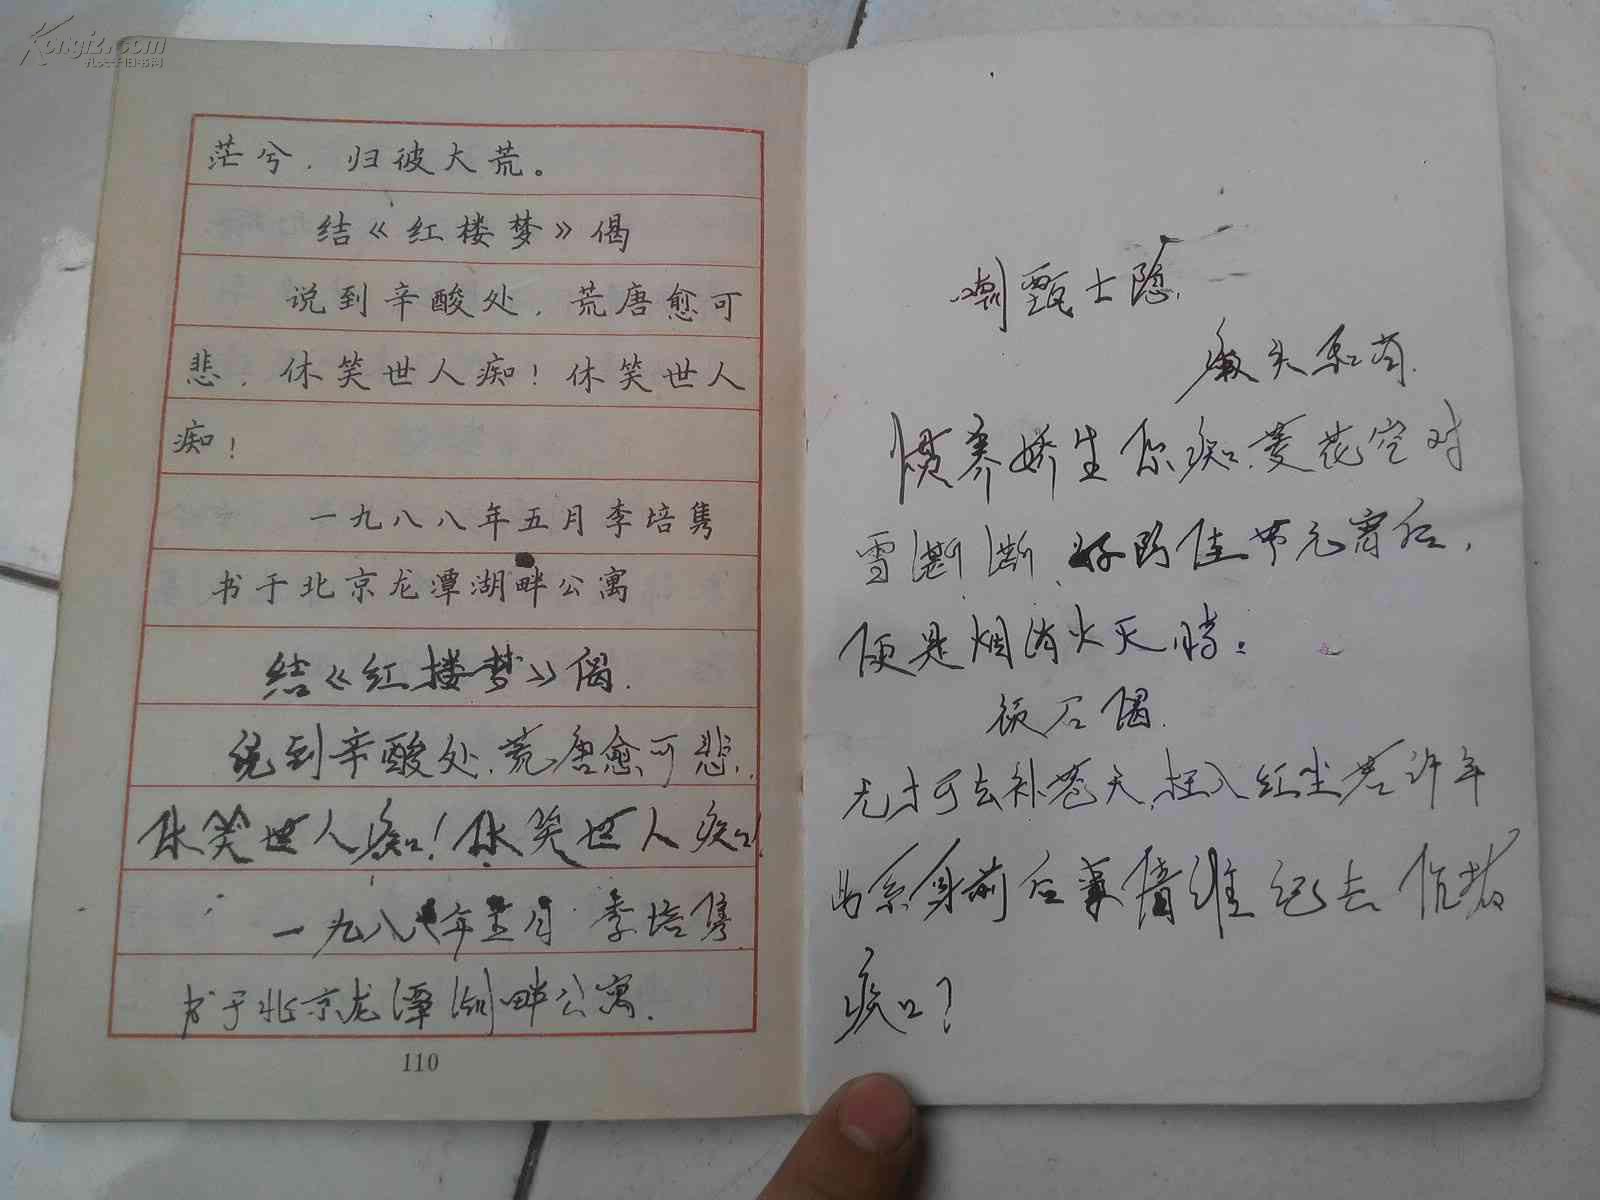 Kongfz.com
孔夫子旧书网
茫兮，归彼大荒。
结《红楼梦》偈
说到辛酸处，荒唐愈可
悲，休笑世人痴！休笑世人
痴！
一九八八年五月李培隽
书于北京龙潭湖畔公寓
结《红楼梦》偈.
说到辛酸处，荒唐愈可悲，
休笑世人痴！休笑世人痴！
一九八八年五月 李培隽
书于北京龙潭湖畔公寓.
110
嘲甄士隐.
癞头和尚.
惯养娇生你痴，菱花空对
雪澌澌，好防佳节元宵后，
便是烟消火灭时：
顽石偈.
无才可去补苍天，枉入红尘若许年
此系身前后事倩谁记去作
痴？